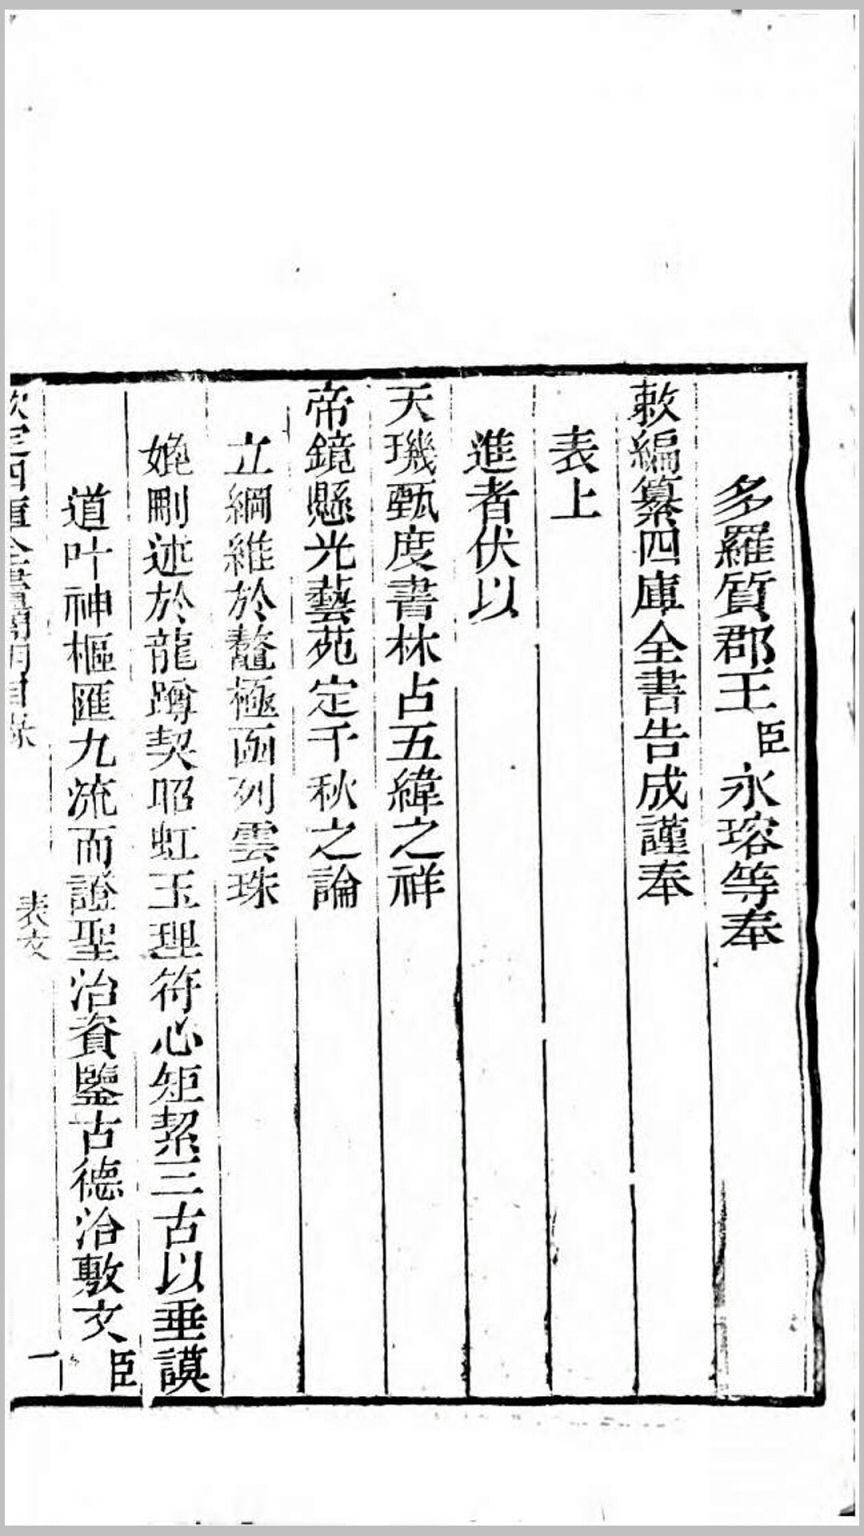 多羅質郡王臣永瑢等奉
敕編纂四庫全書告成謹奉
表上
進者伏以
天璣甄度書林占五緯之祥
帝鏡懸光藝苑定千秋之論
立綱維於鼇極函列雲珠
媲刪述於龍蹲契昭虹玉理符心矩絜三古以垂謨
道叶神樞匯九流而證聖治資鑒古德洽敷文臣
欽定四庫全書簡明目錄
表文
一